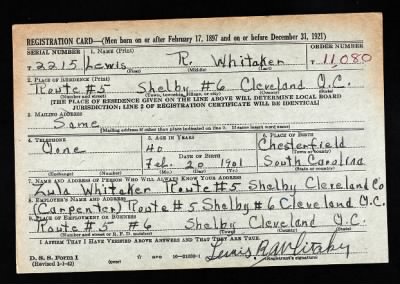 REGISTRATION CARD—(Men born on or after February 17, 1897 and on or before December 31, 1921)
SERIAL NUMBER 1. NAME (Print) ORDER NUMBER
T 2215 Lewis R. Whitaker T 11,080
(First) (Middle) (Last)
2. PLACE OF RESIDENCE (Print)
Route #5 Shelby #6 Cleveland N.C.
(Number and street) (Town, township, village, or city) (County) (State)
[THE PLACE OF RESIDENCE GIVEN ON THE LINE ABOVE WILL DETERMINE LOCAL BOARD
JURISDICTION; LINE 2 OF REGISTRATION CERTIFICATE WILL BE IDENTICAL]
3. MAILING ADDRESS
Same
[Mailing address if other than place indicated on line 2. If same insert word same]
4. TELEPHONE 5. AGE IN YEARS 6. PLACE OF BIRTH
None 40 Chesterfield
DATE OF BIRTH (Town or county)
Feb. 20 1901 South Carolina
(Exchange) (Number) (Mo.) (Day) (Yr.) (State or country)
7. NAME AND ADDRESS OF PERSON WHO WILL ALWAYS KNOW YOUR ADDRESS
Lula Whitaker Route #5 Shelby Cleveland Co
8. EMPLOYER'S NAME AND ADDRESS
(Carpenter) Route #5 Shelby #6 Cleveland N.C.
9. PLACE OF EMPLOYMENT OR BUSINESS
Route #5 #6 Shelby Cleveland N.C.
(Number and street or R. F. D. number) (Town) (County) (State)
I AFFIRM THAT I HAVE VERIFIED ABOVE ANSWERS AND THAT THEY ARE TRUE.
D. S. S. Form 1
(Revised 1-1-42) (over)
(Registrant's signature)